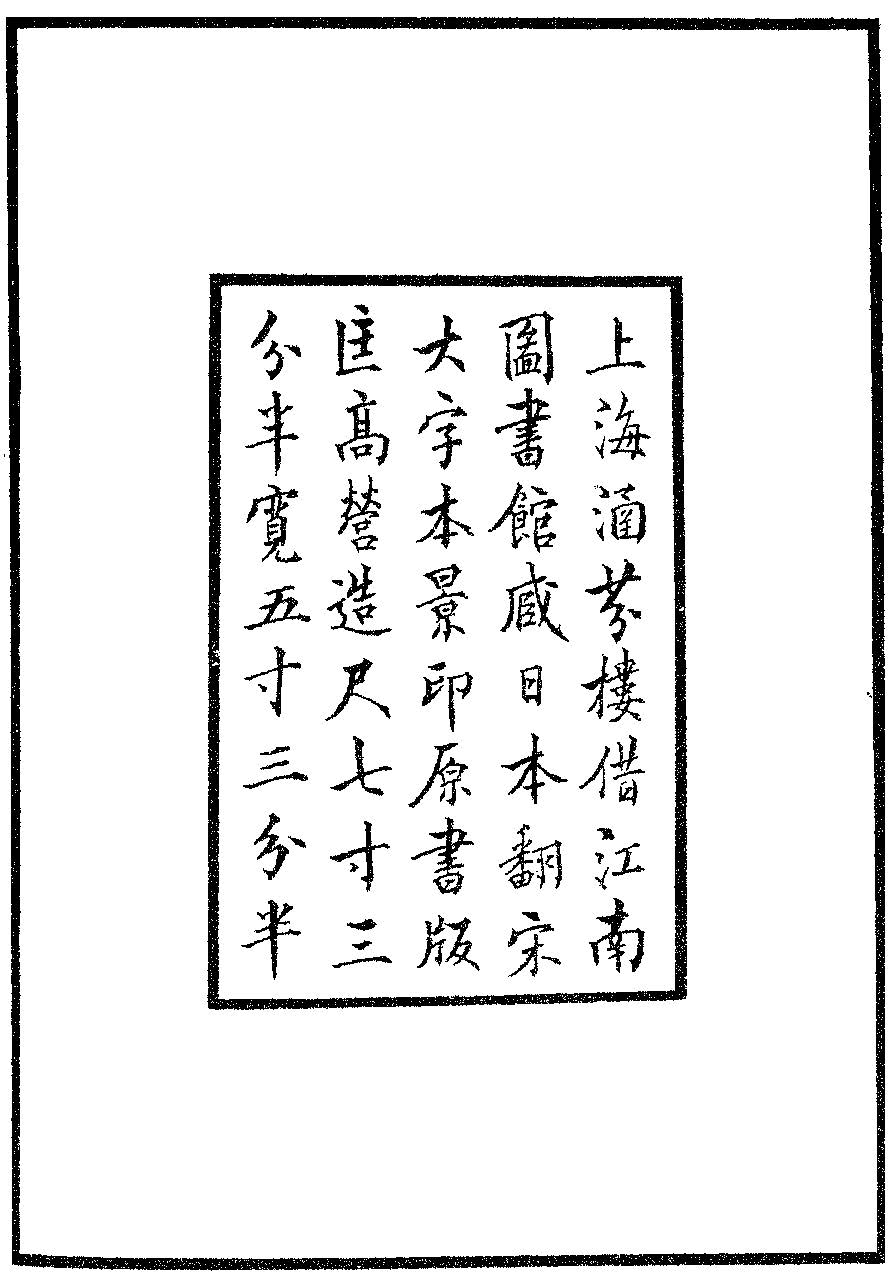 上海涵芬樓借江南
圖書館臧日本翻宋
大字本景印原書版
匡高營造尺七寸三
分半寬五寸三分半